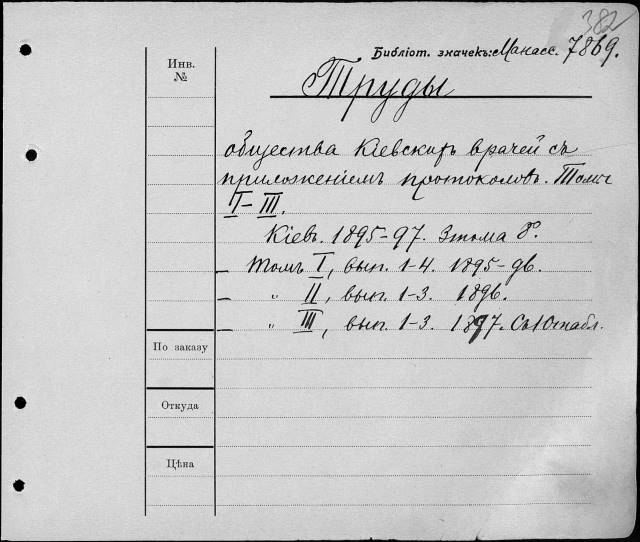 382
Библіот. значекъ: Манасс. 7869.
Инв.
№
Труды
общества Кіевскихъ врачей съ
приложеніемъ протоколовъ. Томы
I–III.
Кіевъ. 1895-97. 3 тома 8°.
– Томъ I, вып. 1-4. 1895-96.
– " II, вып. 1-3. 1896.
– " III, вып. 1-3. 1897. Съ 10 табл.
По заказу
Откуда
Цѣна